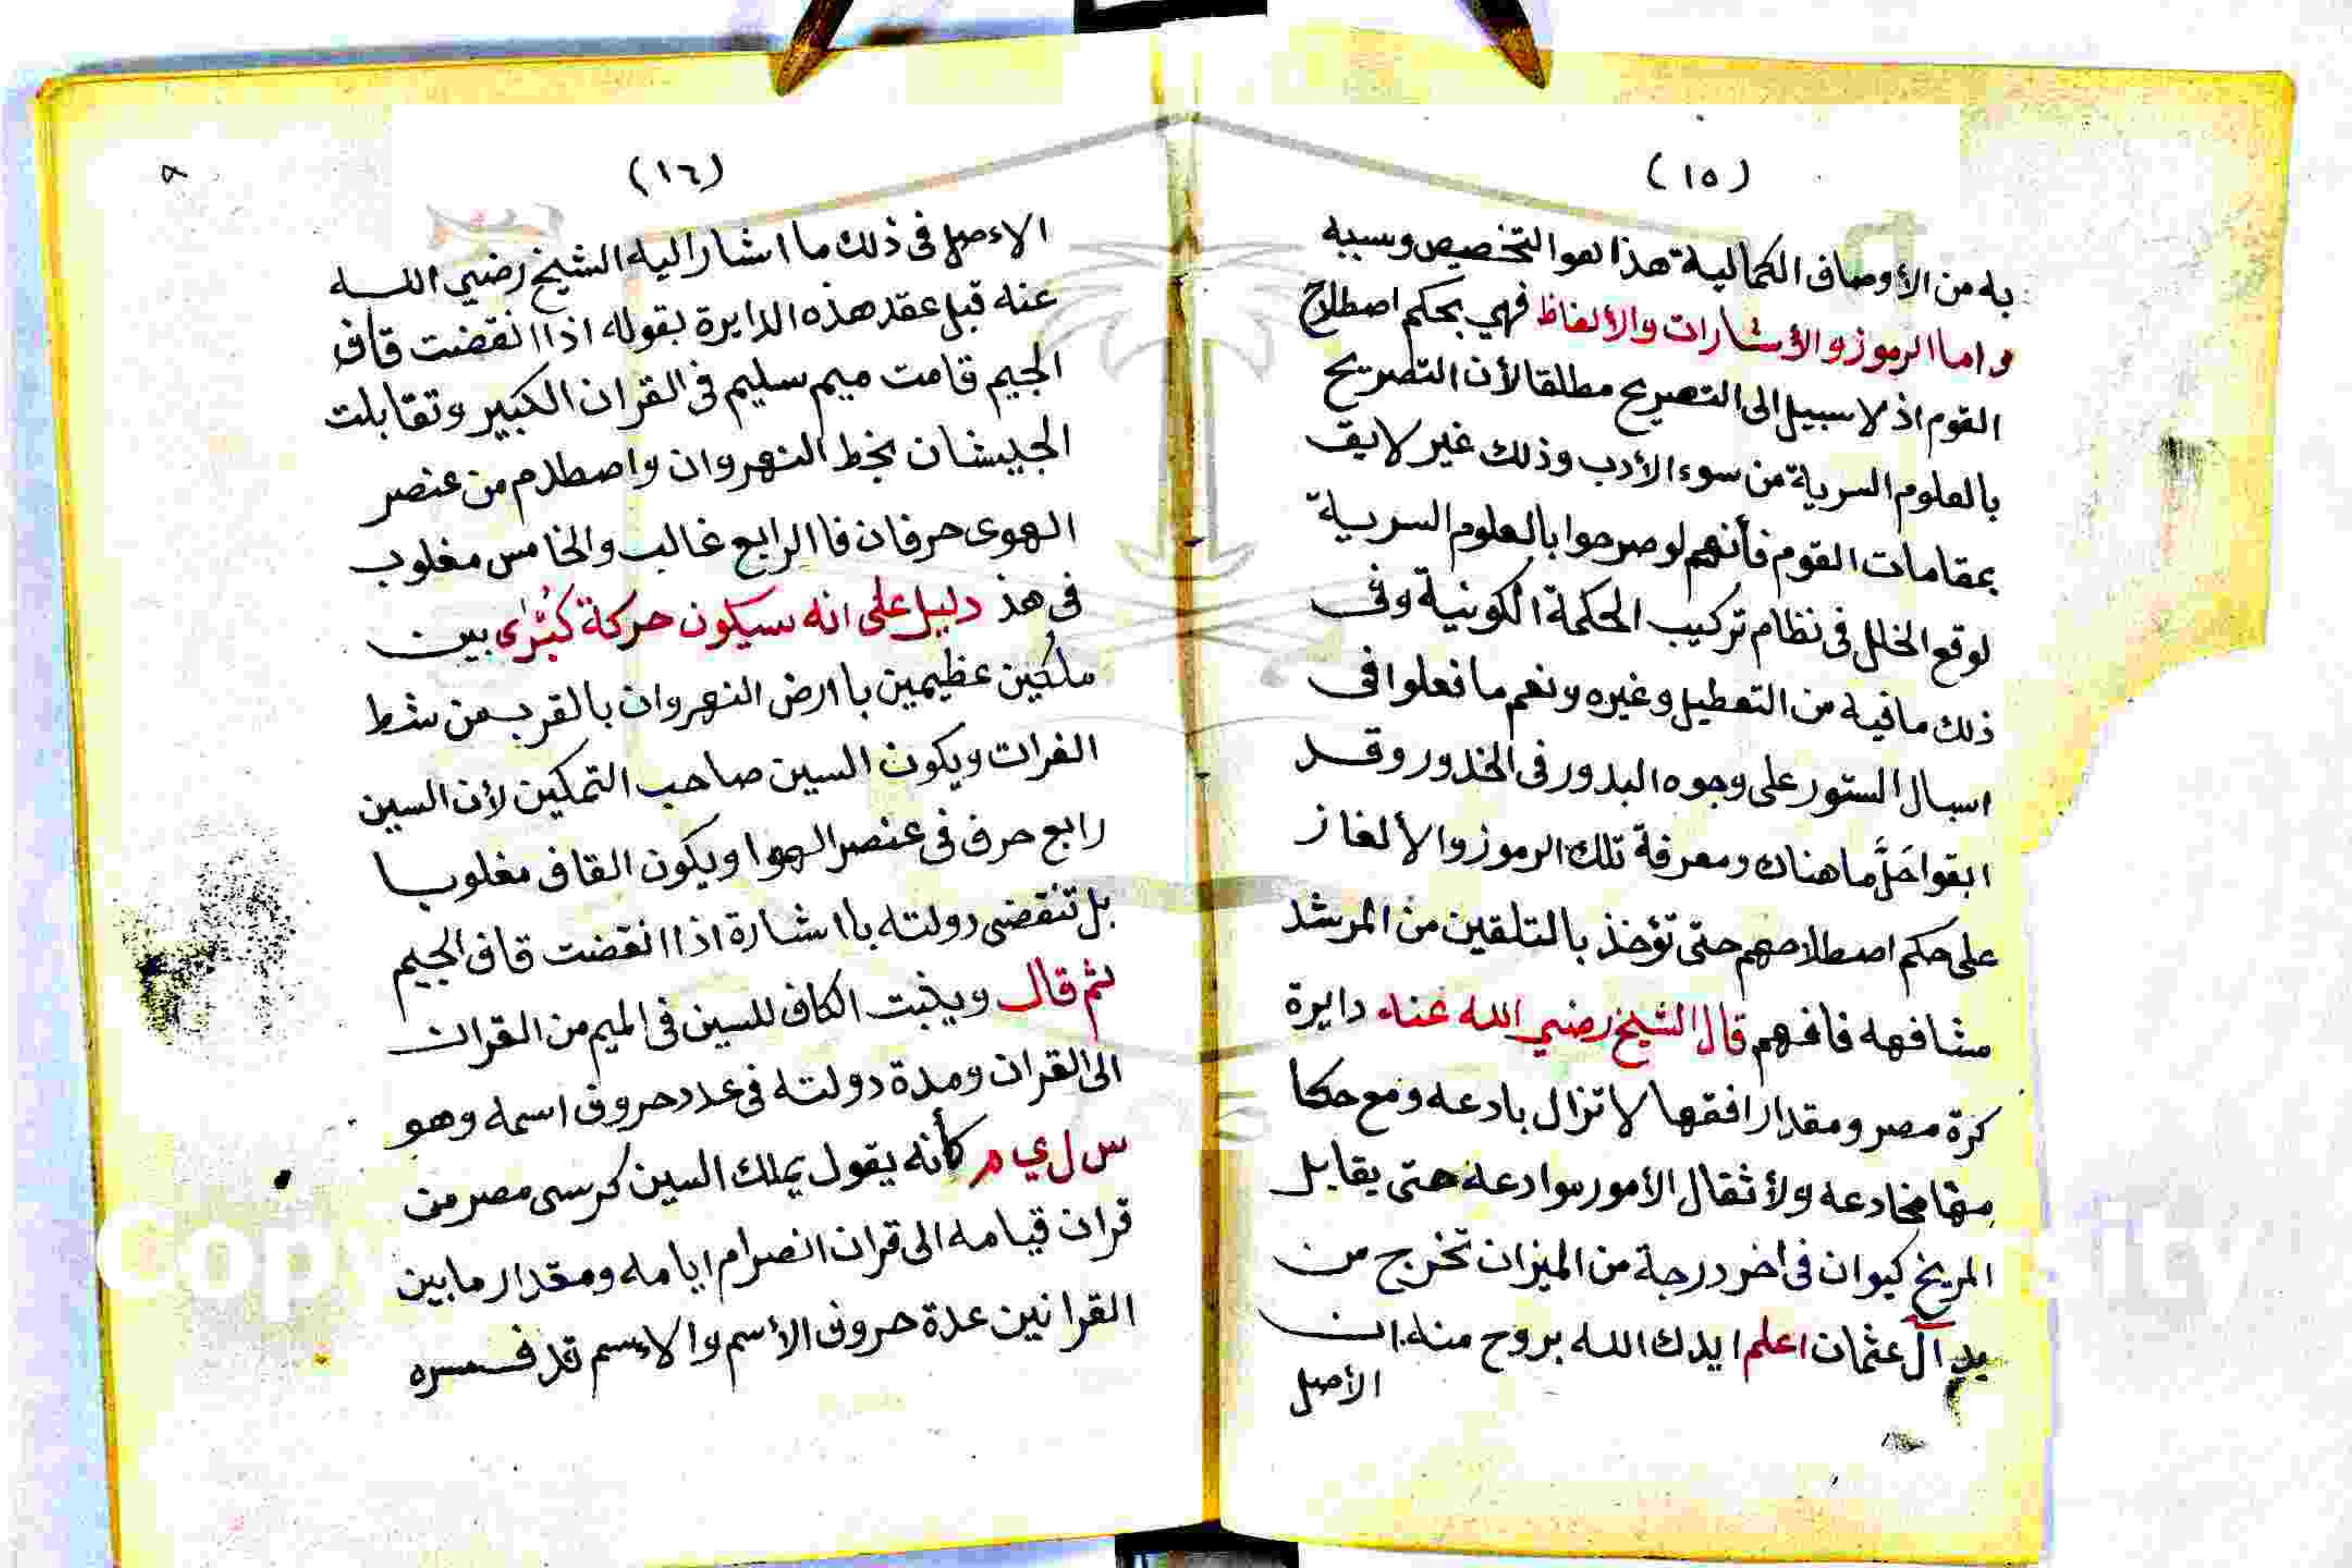 (١٥)
به من الأوصاف الكمالية هذا هو التخصيص وسببه
واما الرموز والأشارات والألغاظ فهي بحكم اصطلاح
القوم اذ لا سبيل الى التصريح مطلقا لأن التصريح
بالعلوم السرية من سوء الأدب وذلك غير لايق
بمقامات القوم فأنهم لو صرحوا بالعلوم السرية
لوقع الخلل في نظام تركيب الحكمة الكونية وفى
ذلك ما فيه من التعطيل وغيره ونعم ما فعلوا فى
اسبال الستور على وجوه البدور فى الخدور وقد
ابقوا حَلَّ ما هناك ومعرفة تلك الرموز والألغاز
على حكم اصطلاحهم حتى تؤخذ بالتلقين من المرشد
مشافهه فافهم قال الشيخ رضي الله عنه دايرة
كرة مصر ومقدار افقها لا تزال بادعه ومع حكا
مها مخادعه ولأثقال الأمور موادعة حتى يقابل
المريخ كيوان فى اخر درجة من الميزان تخرج من
يد آل عثمان اعلم ايدك الله بروح منه ان
الأصل
(١٦)
٨
الاءصل فى ذلك ما اشار اليه الشيخ رضي الله
عنه قبل عقد هذه الدايرة بقوله اذا انقضت قاف
الجيم قامت ميم سليم فى القران الكبير وتقابلت
الجيشان بخط النهروان واصطلام من عنصر
الهوى حرفان فا الرابع غالب والخامس مغلوب
فى هذ دليل على انه سيكون حركة كُبْرٰى بين
ملكين عظيمين با ارض النهروان بالقرب من شط
الفرات ويكون السين صاحب التمكين لأن السين
رابع حرف فى عنصر الهوا ويكون القاف مغلوبا
بل تنقضى دولته با اشارة اذا انقضت قاف الجيم
ثم قال ويثبت الكاف للسين فى الميم من القران
الى القران ومدة دولته فى عدد حروف اسمه وهو
س ل ي م كأنه يقول يملك السين كرسى مصر من
قران قيامه الى قران انصرام ايامه ومقدار ما بين
القرانين عدة حروف الأسم والاءسم قد فسره